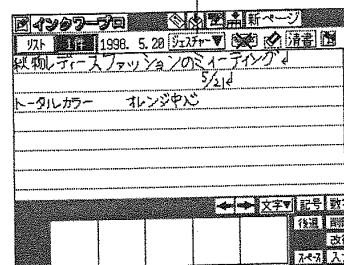 インクワープロ 新ページ
リスト 1件 1998. 5.20 ジェスチャー▼ 清書
秋物レディースファッションのミィーティング↲
5/21↲
トータルカラー オレンジ中心
← → 文字▼ 記号 数字
後退 削除
改行
スペース 入力